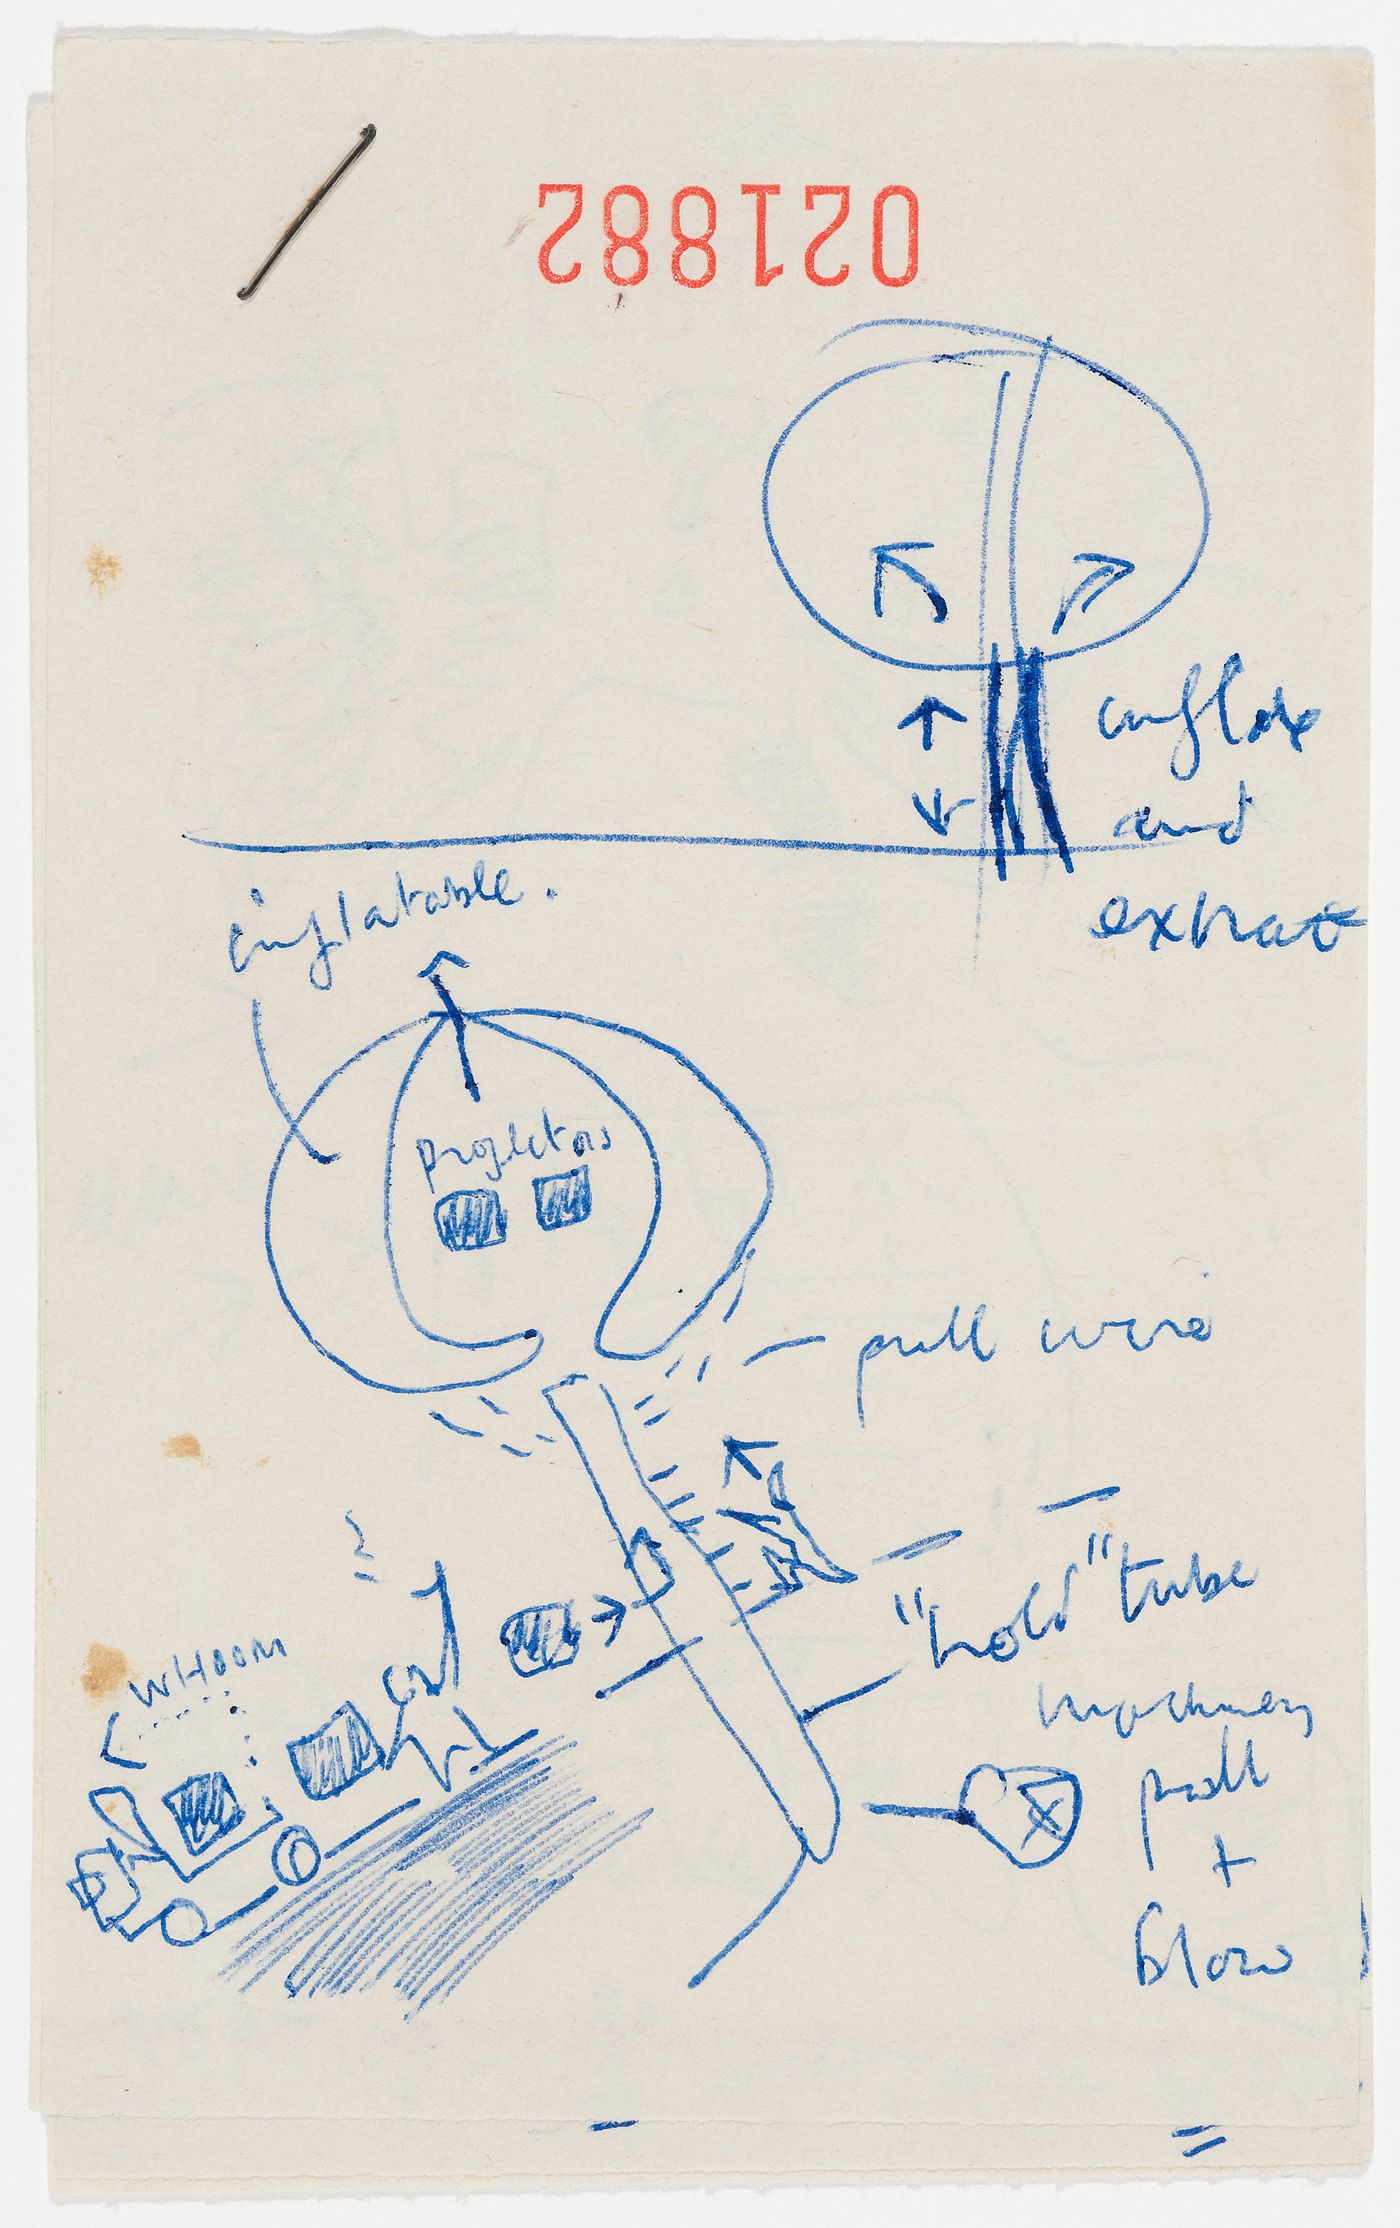 021882
inflate
and
extract
inflatable.
projectors
pull wire
"hold" tube
WHOOM
machinery
pull
+
blow